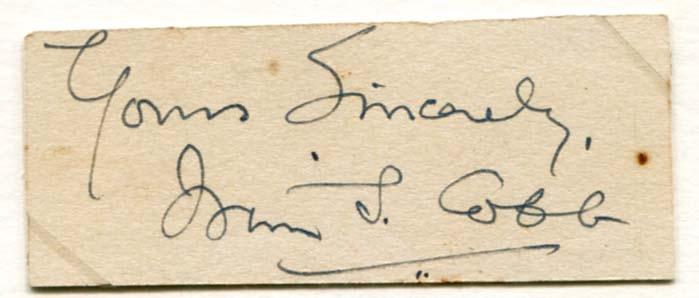 Yours Sincerely,
Irvin S. Cobb